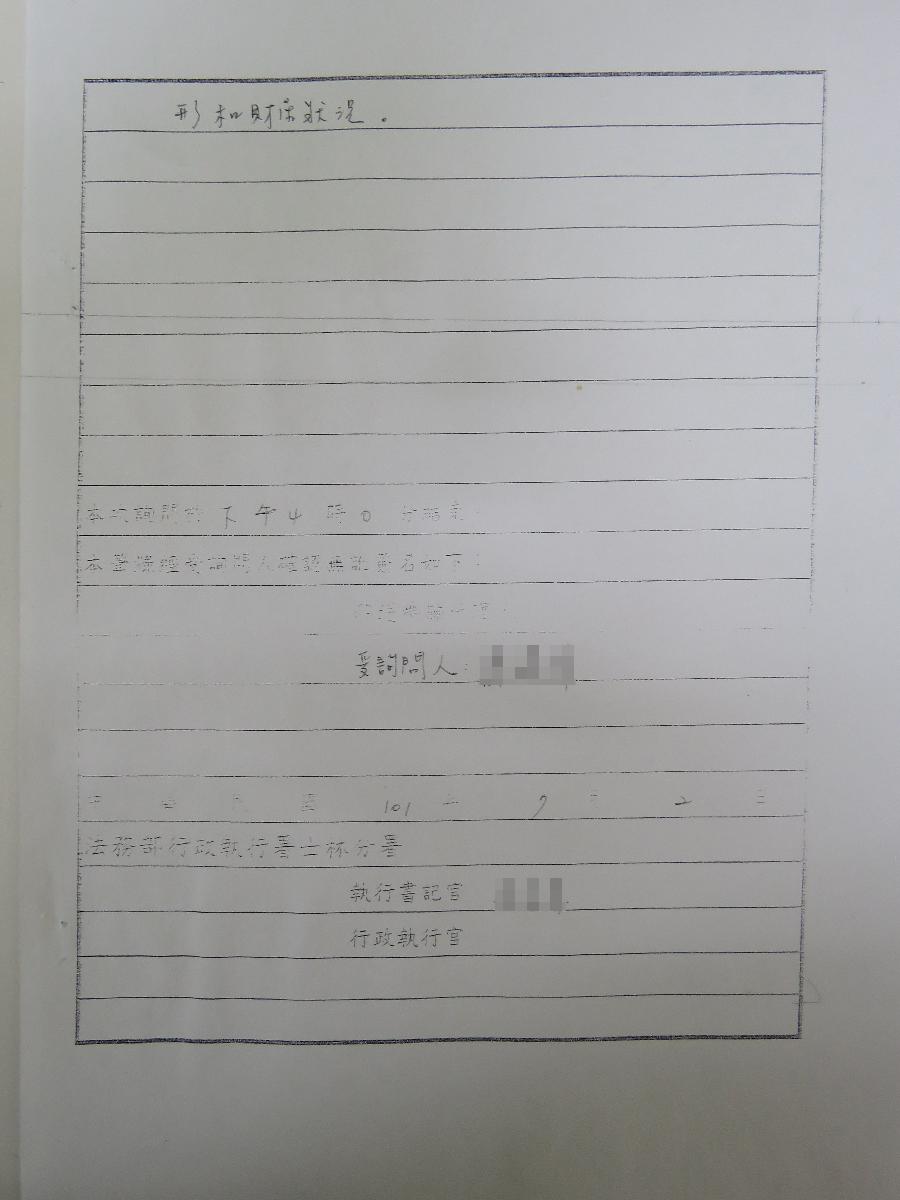 形和財保狀況。
本次詢問於下午4時0分結束。
本筆錄經受詢問人確認無訛簽名如下：
受詢問人：
中華民國101年9月2日
法務部行政執行署士林分署
執行書記官
行政執行官